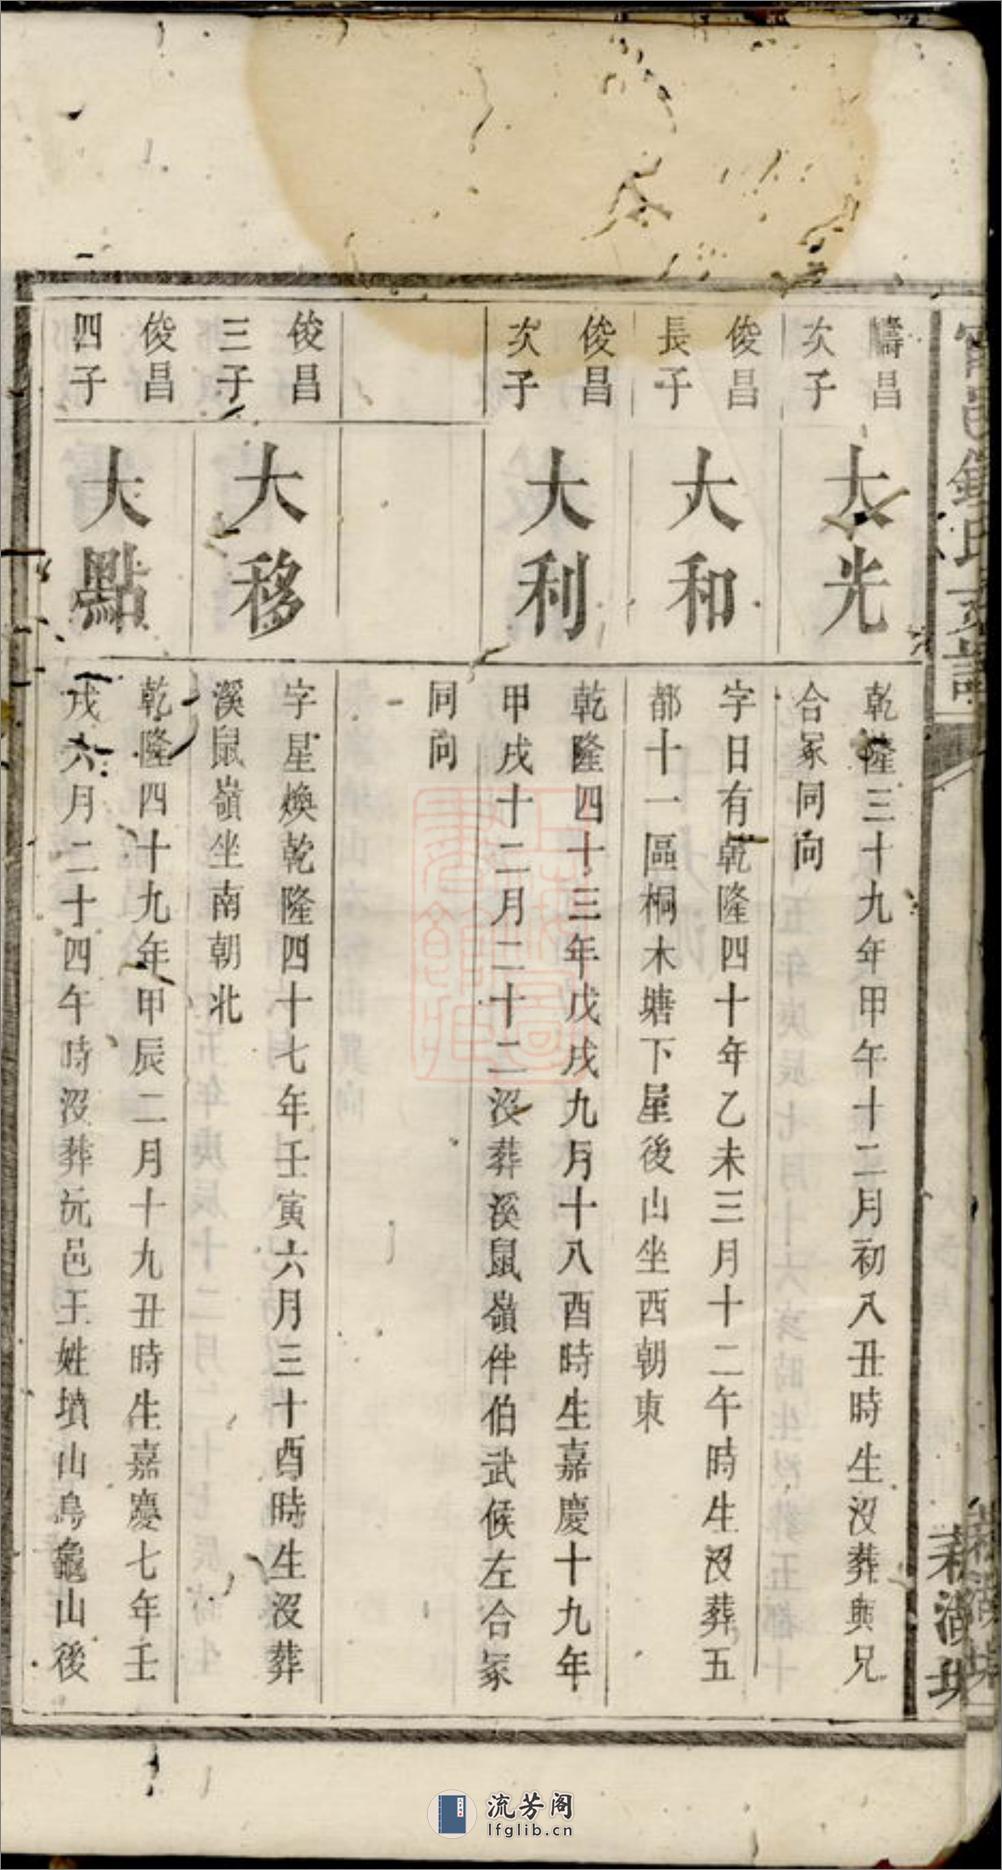 疇昌
次子
大光
乾隆三十九年甲午十二月初八丑時生沒葬與兄
合冢同向
俊昌
長子
大和
字日有乾隆四十年乙未三月十二午時生沒葬五
都十一區桐木塘下屋後山坐西朝東
俊昌
次子
大利
乾隆四十三年戊戌九月十八酉時生嘉慶十九年
甲戌十二月二十二沒葬溪鼠嶺伴伯武候左合冢
同向
俊昌
三子
大移
字星煥乾隆四十七年壬寅六月三十酉時生沒葬
溪鼠嶺坐南朝北
俊昌
四子
大點
乾隆四十九年甲辰二月十九丑時生嘉慶七年壬
戌六月二十四午時沒葬沅邑王姓墳山烏龜山後
流芳阁
lfglib.cn